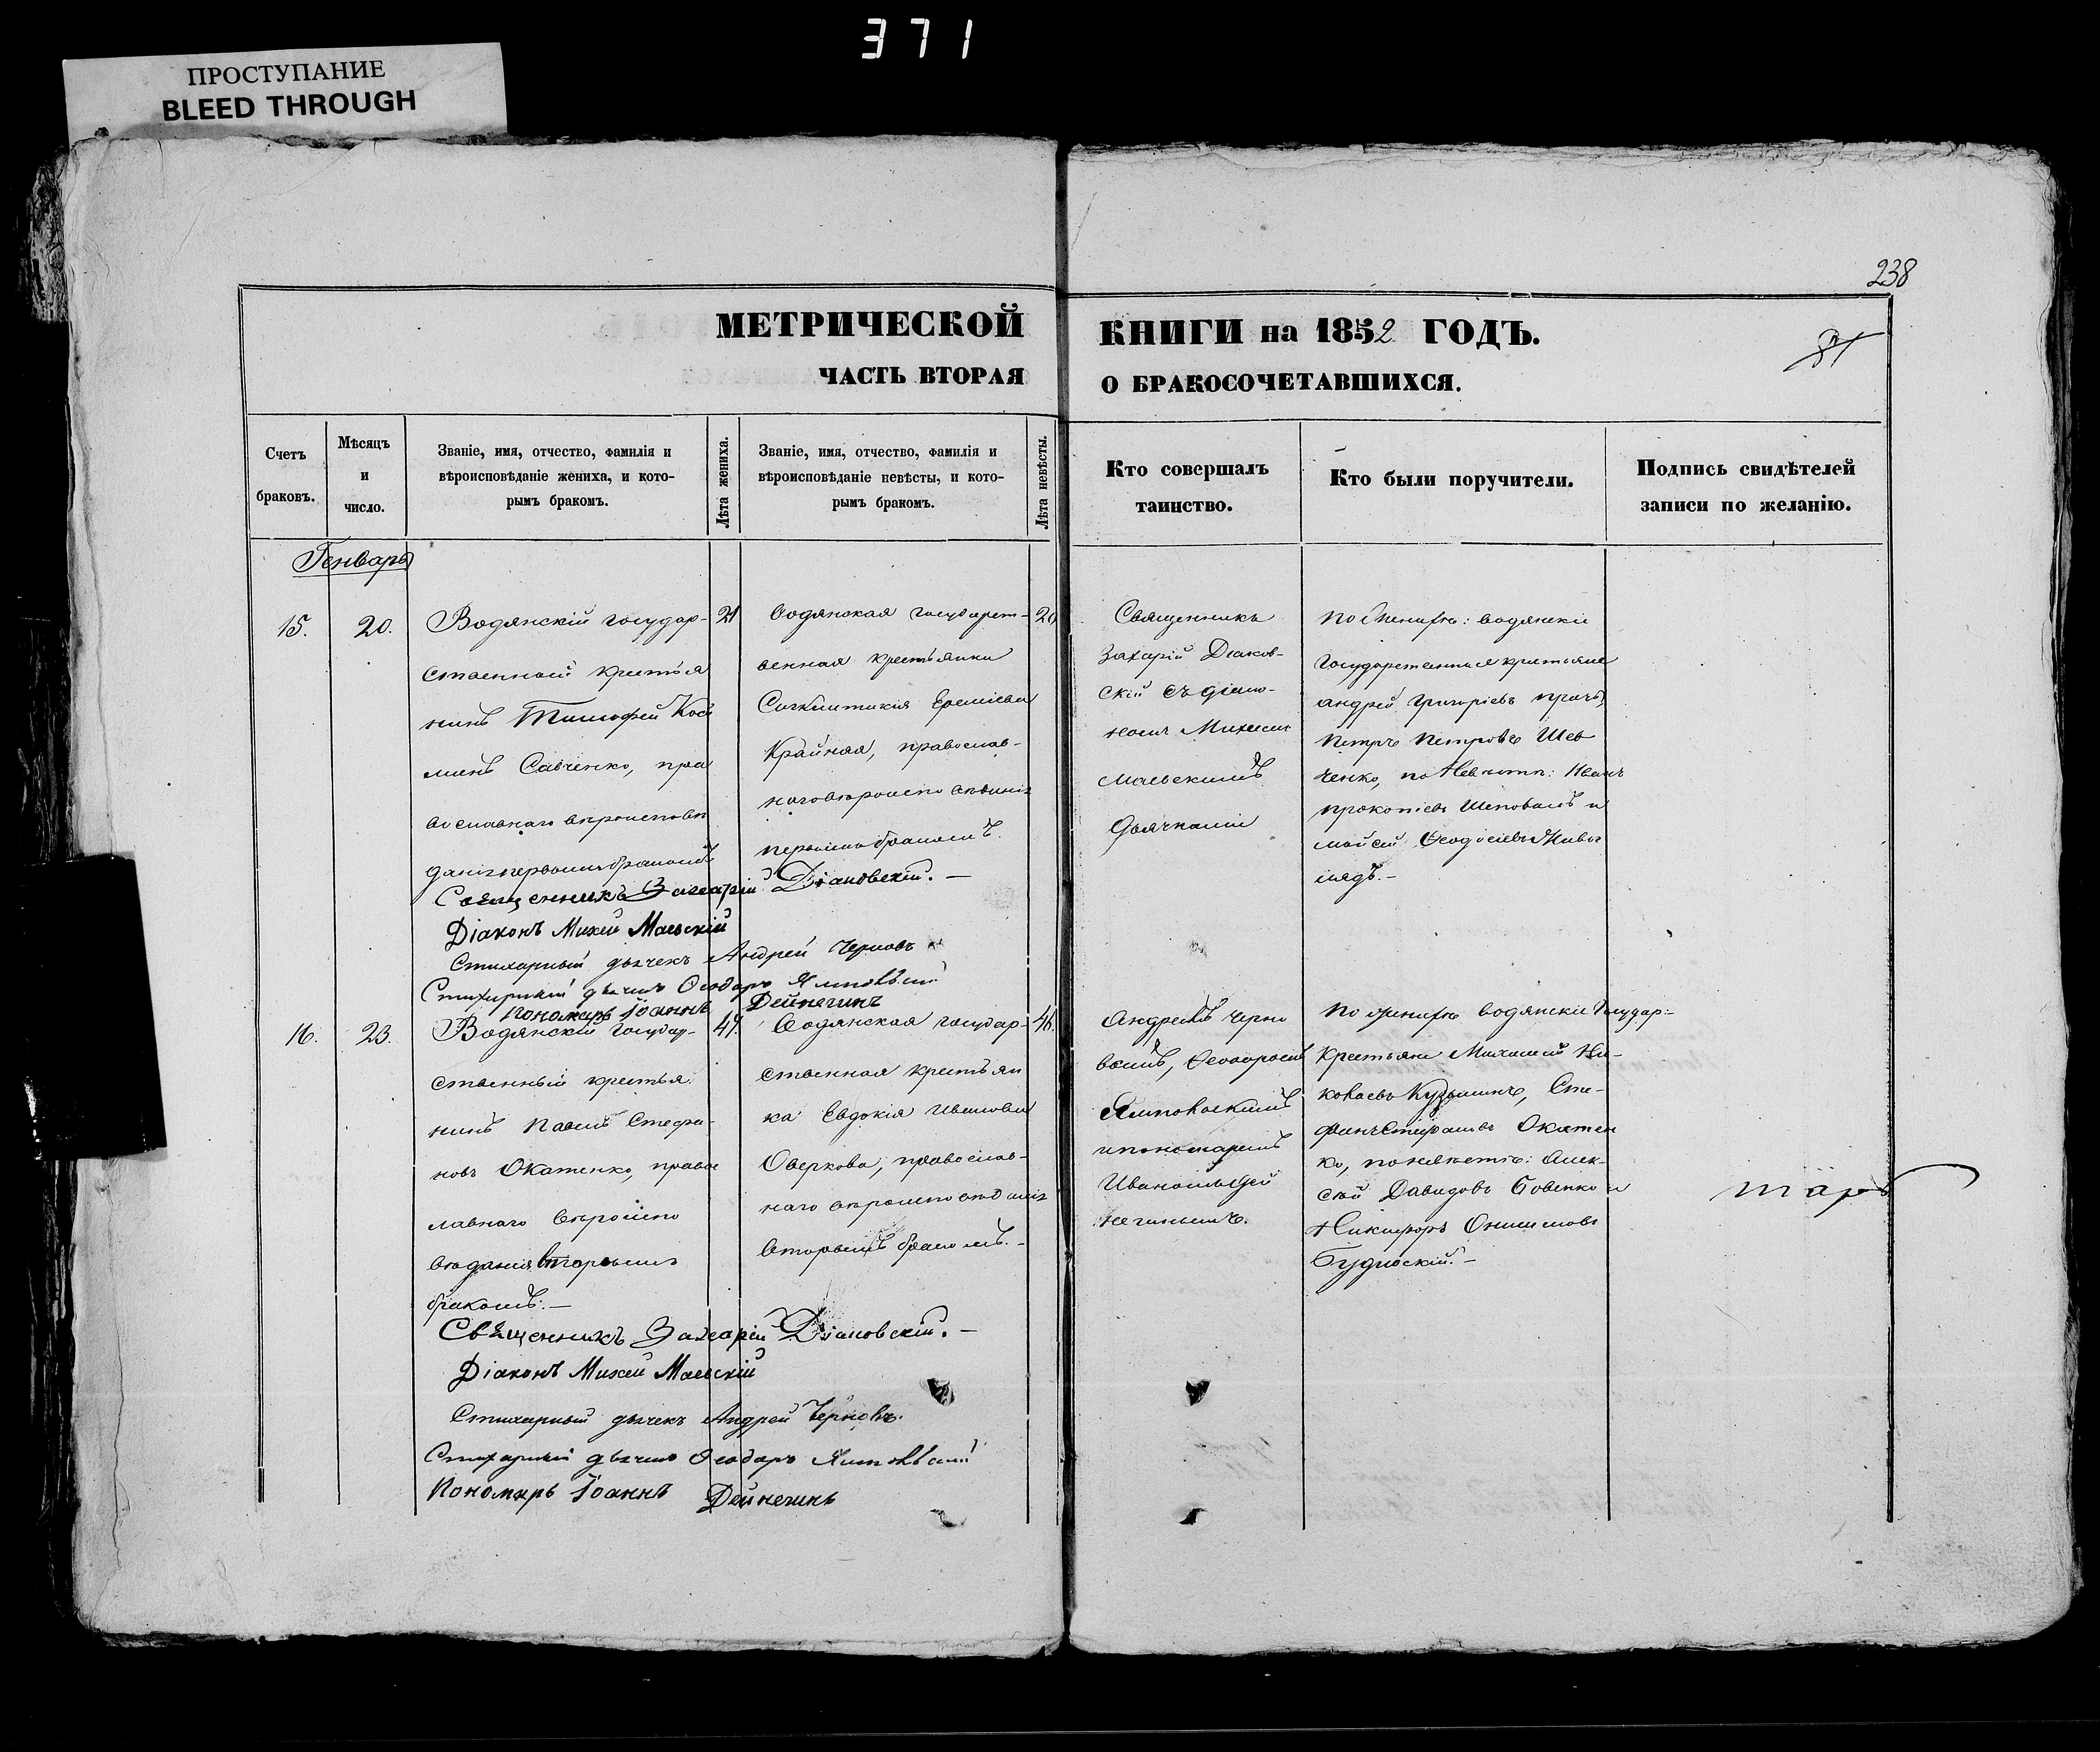 371
ПРОСТУПАНИЕ
BLEED THROUGH
238
МЕТРИЧЕСКОЙ КНИГИ на 1852 ГОДЪ.
81
ЧАСТЬ ВТОРАЯ О БРАКОСОЧЕТАВШИХСЯ.
Счетъ браковъ.
Мѣсяцъ и число.
Званіе, имя, отчество, фамилія и
вѣроисповѣданіе жениха, и кото-
рымъ бракомъ.
Лѣта жениха.
Званіе, имя, отчество, фамилія и
вѣроисповѣданіе невѣсты, и кото-
рымъ бракомъ.
Лѣта невѣсты.
Кто совершалъ
таинство.
Кто были поручители.
Подпись свидѣтелей
записи по желанію.
Генварь
15.
20.
Водянскій государ-
ственный крестья
нинъ Тимофей Кось
минъ Савченко, пра
вославнаго вѣроисповѣ
данія первымъ бракомъ
21
Водянская государст-
венная крестьянка
Еремѣева
Крайняя, православ-
наго вѣроисповѣданія
первымъ бракомъ.
20
Священникъ
Захарій Діаков-
скій съ діако-
номъ Михеемъ
Маевскимъ
дьячками
По женихѣ: водянскіе
государственные крестьяне
Андрей Григоріевъ
Петръ Петровъ Шев
ченко, по невѣстѣ: Иванъ
Прокопіевъ Шаповалъ и
Мойсей Ѳеодосіевъ
Священникъ Захарій Діаковскій.—
Діаконъ Михей Маевскій
Стихарный дьячекъ Андрей Черновъ
Стихарный дьячекъ Ѳеодоръ Ямповскій
Пономарь Іоаннъ Дейнегинъ
16.
23.
Водянскій государ-
ственный крестья
нинъ Павелъ Стефа-
новъ Окатенко, правос
лавнаго вѣроиспо
вѣданія, вторымъ
бракомъ.—
47.
Водянская государ-
ственная крестьян
ка Евдокія Иванова
Оверкова, православ-
наго вѣроисповѣданія
вторымъ бракомъ.—
46.
Андреемъ Черно
вымъ, Ѳеодоромъ
Ямповскимъ
и пономаремъ
Иваномъ Дей
негинымъ.
По женихѣ водянскіе государ:
крестьяне Михаилъ Ни-
Кузьминъ, Сте-
фанъ Стефановъ Окатен
ко, по невѣстѣ: Алек-
сѣй Давидовъ Бовенко и
Никифоръ Онисимовъ
Будносскій.—
тарь
Священникъ Захарій Діаковскій.—
Діаконъ Михей Маевскій
Стихарный дьячекъ Андрей Черновъ.
Стихарный дьячекъ Ѳеодоръ Ямповскій
Пономарь Іоаннъ Дейнегинъ